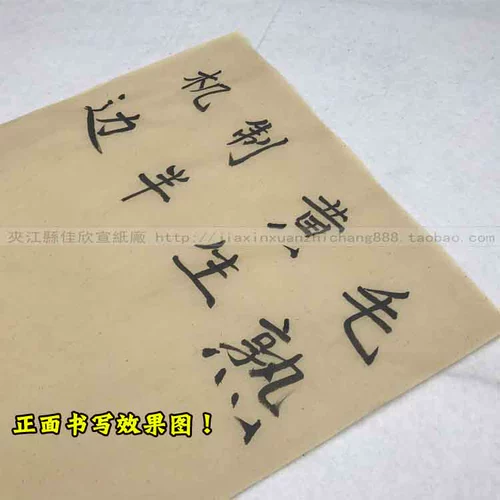 机制黄毛
边半生熟
夾江縣佳欣宣紙廠 http://jiaxinxuanzhichang888.taobao.com
正面书写效果图！